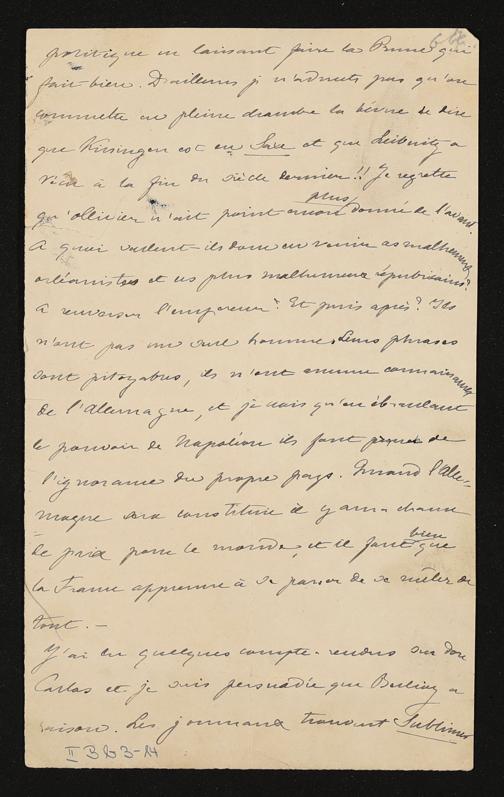 politique en laissant faire la Prusse qui
fait bien. D'ailleurs je n'admets pas qu'on
commette en pleine chambre la bévue de dire
que Kissingen est en Saxe et que Leibnitz a
vécu à la fin du siècle dernier!! Je regrette
plus
qu'Ollivier n'ait point encore donné de l'avant.
A quoi veulent-ils donc en venir ces malheureux
orléanistes et ces plus malheureux républicains?
A renverser l'empereur? Et puis après? Ils
n'ont pas un seul homme. Leurs phrases
sont pitoyables, ils n'ont aucune connaissance
de l'Allemagne, et je vois qu'en ébranlant
le pouvoir de Napoléon ils font de
l'ignorance du propre pays. Quand l'Alle-
magne sera constituée il y aura chance
de paix pour le monde, et il faut que
bien
la France apprenne à se passer de se mêler de
tout. —
J'ai lu quelques compte-rendus sur Don
Carlos et je suis persuadée que Berlioz a
raison. Les journaux trouvent Sublimes
II B b 3-14